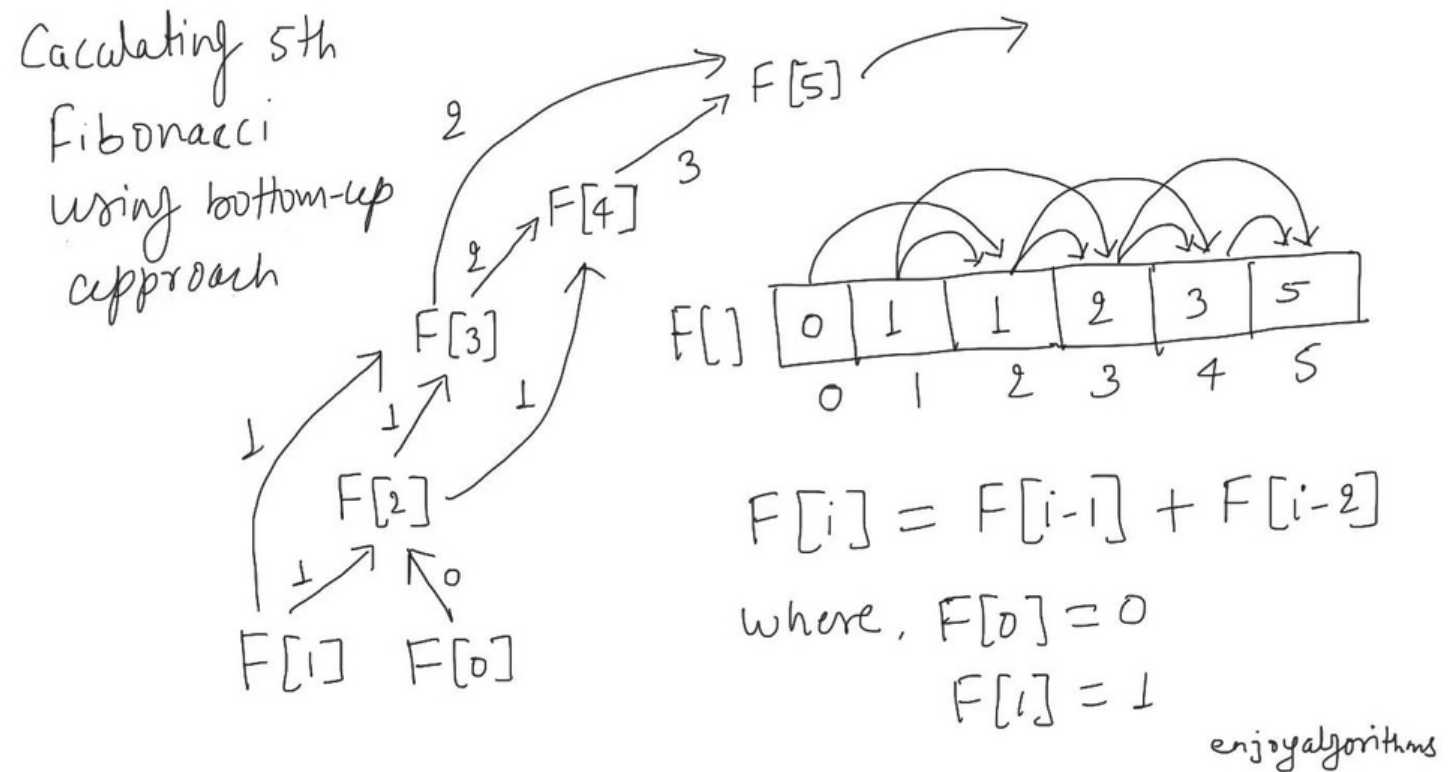 Caculating 5th
Fibonacci
using bottom-up
approach
F[5]
2
3
F[4]
2
F[3]
1
1
1
F[2]
1
0
F[1] F[0]
F[] 0 1 1 2 3 5
0 1 2 3 4 5
F[i] = F[i-1] + F[i-2]
where, F[0] = 0
F[1] = 1
enjoyalgorithms